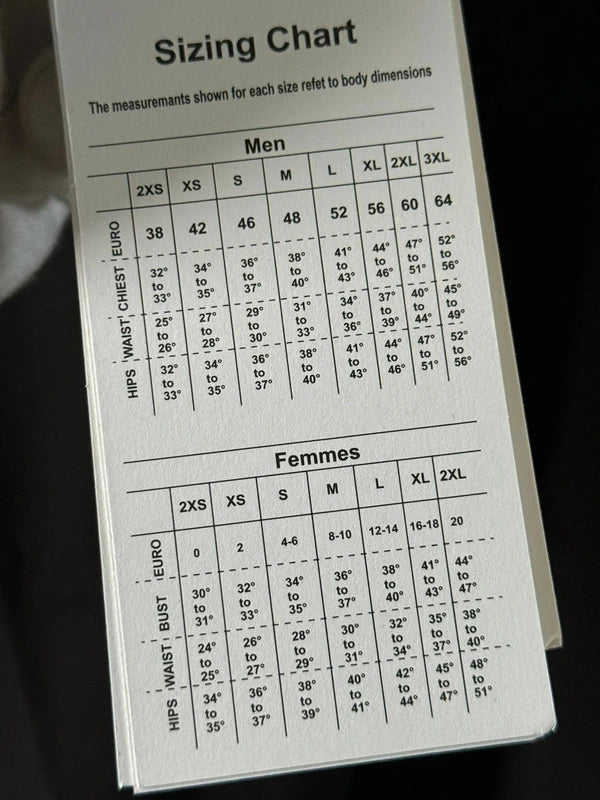 Sizing Chart
The measuremants shown for each size refet to body dimensions
Men
2XS XS S M L XL 2XL 3XL
EURO 38 42 46 48 52 56 60 64
CHIEST 32° to 33° 34° to 35° 36° to 37° 38° to 40° 41° to 43° 44° to 46° 47° to 51° 52° to 56°
WAIST 25° to 26° 27° to 28° 29° to 30° 31° to 33° 34° to 36° 37° to 39° 40° to 44° 45° to 49°
HIPS 32° to 33° 34° to 35° 36° to 37° 38° to 40° 41° to 43° 44° to 46° 47° to 51° 52° to 56°
Femmes
2XS XS S M L XL 2XL
EURO 0 2 4-6 8-10 12-14 16-18 20
BUST 30° to 31° 32° to 33° 34° to 35° 36° to 37° 38° to 40° 41° to 43° 44° to 47°
WAIST 24° to 25° 26° to 27° 28° to 29° 30° to 31° 32° to 34° 35° to 37° 38° to 40°
HIPS 34° to 35° 36° to 37° 38° to 39° 40° to 41° 42° to 44° 45° to 47° 48° to 51°